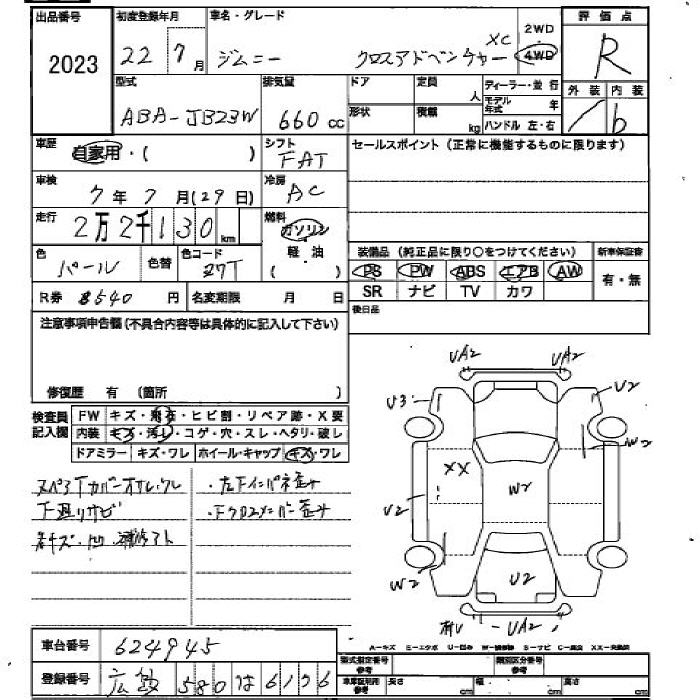 出品番号
2023
初度登録年月
22 7月
車名・グレード
ジムニー クロスアドベンチャー XC
2WD
4WD
評価点
R
外装 内装
b
型式
ABA-JB23W
排気量
660 cc
ドア
定員
人
形状
積載
kg
ディーラー・並行
モデル年式 年
ハンドル 左・右
車歴
自家用・( )
シフト
FAT
セールスポイント(正常に機能するものに限ります)
車検
7年7月(29日)
冷房
AC
走行
2万2千130 km
燃料
ガソリン・軽油
( )
色
パール
色替
色コード
27T
装備品(純正品に限り○をつけてください)
新車保証書
PS PW ABS エアB AW
SR ナビ TV カワ
有・無
R券 8540 円
名変期限 月 日
後日品
注意事項申告欄(不具合内容等は具体的に記入して下さい)
修復歴 有 (箇所 )
検査員記入欄
FW キズ・飛石・ヒビ割・リペア跡・X要
内装 キズ・汚レ・コゲ・穴・スレ・ヘタリ・破レ
ドアミラー キズ・ワレ ホイール・キャップ キズ・ワレ
下廻りサビ
UA2 UA2
U3 U2
W2
XX
W2
U2
W2
U2
UA2
A-キズ E-エクボ U-凹み W-補修跡 S-サビ C-腐食 XX-交換済
車台番号
624945
型式指定番号
類別区分番号
登録番号
580 は 6156
車庫証明用参考
長さ cm 幅 cm 高さ cm